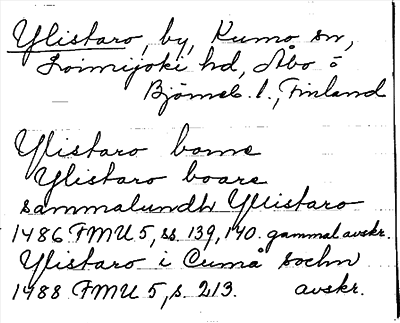 Ylistaro, by, Kumo sn,
Loimijoki hd, Åbo o
Björneb. l., Finland
Ylistaro bome
Ylistaro boare
sammalundh Ylistaro
1486 FMU 5, ss. 139, 140. gammal avskr.
Ylistaro i Cumå sochn
1488 FMU 5, s. 213. avskr.